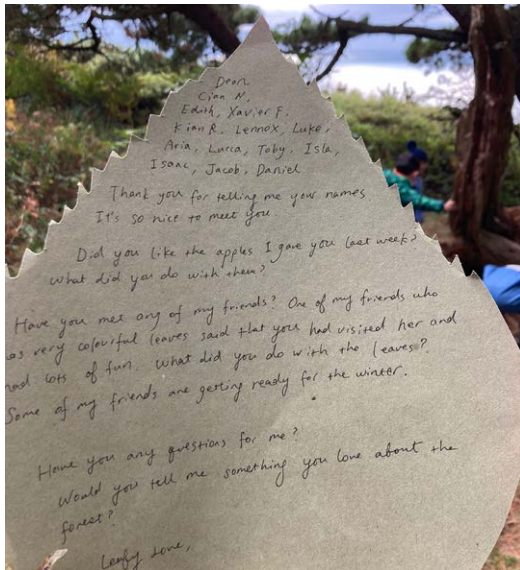 Dear
Cian N,
Edith, Xavier F,
Kian R, Lennox, Luke,
Aria, Lucca, Toby, Isla,
Isaac, Jacob, Daniel
Thank you for telling me your names
It's so nice to meet you.
Did you like the apples I gave you last week?
What did you do with them?
Have you met any of my friends? One of my friends who
has very colourful leaves said that you had visited her and
had lots of fun. What did you do with the leaves?
Some of my friends are getting ready for the winter.
Have you any questions for me?
Would you tell me something you love about the
forest?
Leafy love,